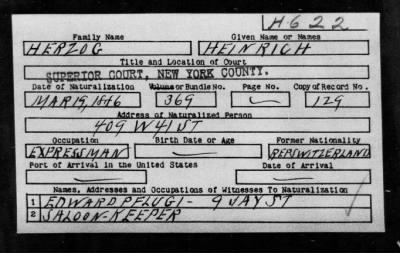 H-622
Family Name Given Name or Names
HERZOG HEINRICH
Title and Location of Court
SUPERIOR COURT, NEW YORK COUNTY.
Date of Naturalization Volume or Bundle No. Page No. Copy of Record No.
MAR 19, 1846 369 129
Address of Naturalized Person
409 W 41 ST
Occupation Birth Date or Age Former Nationality
EXPRESSMAN REP SWITZERLAND
Port of Arrival in the United States Date of Arrival
Names, Addresses and Occupations of Witnesses To Naturalization
1 EDWARD PFLUGI - 9 JAY ST
2 SALOON-KEEPER